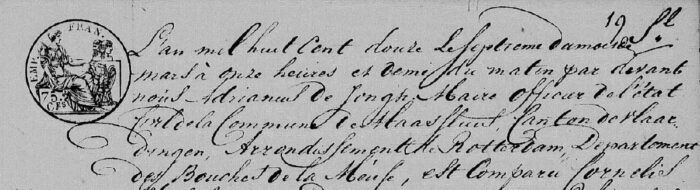 19 fl.
EMP. FRAN.
75
L'an mil huit Cent douze Le Septieme du mois de
mars à onze heures et demie du matin par devant
nous Adrianus de Jongh Maire Officier de l'état
Civil de la Commune de Maassluis, Canton de Vlaar
dingen, Arrondissement de Rotterdam, Departement
des Bouches de la Meuse, est Comparu Cornelis